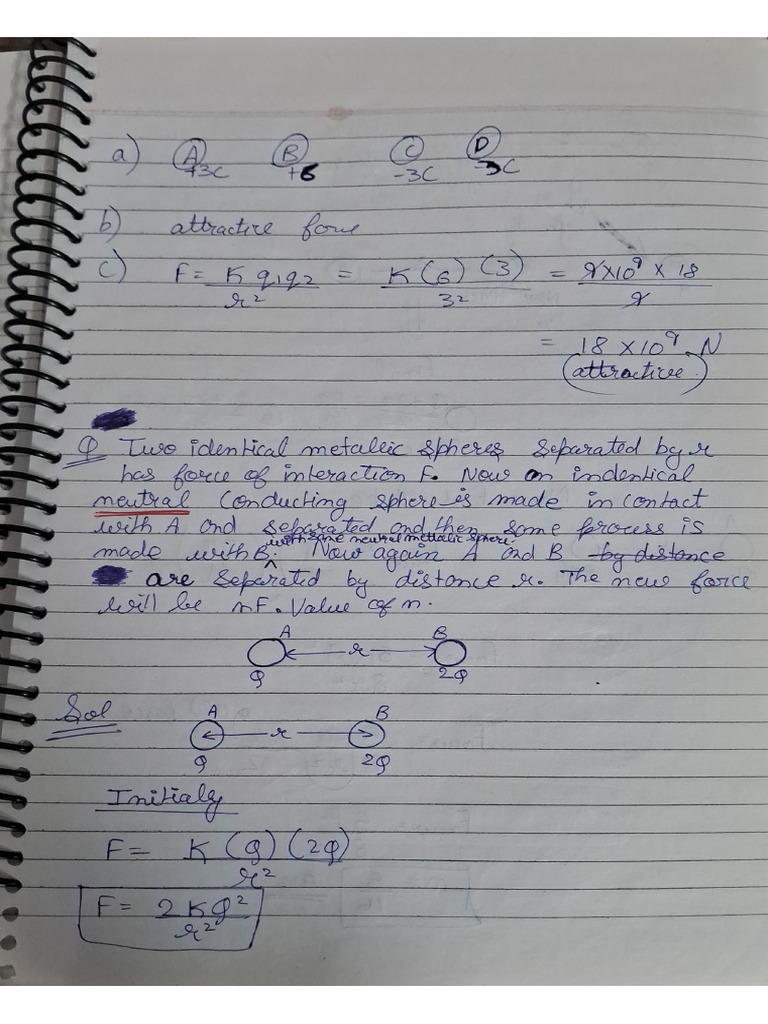 a) A B C D
+3C +6 -3C -3C
b) attractive force
c) F = K q1q2 / r² = K (6) (3) / 3² = 9×10⁹ × 18 / 9
= 18 ×10⁹ N
(attractive)
Q Two identical metallic spheres separated by r
has force of interaction F. Now an indentical
neutral conducting sphere is made in contact
with A and separated and then same process is
with same neutral mettalic sphere.
made with B. Now again A and B by distance
are separated by distance r. The new force
will be nF. Value of n.
A r B
Q 2Q
Sol A r B
Q 2Q
Initialy
F = K (Q) (2Q) / r²
F = 2KQ² / r²